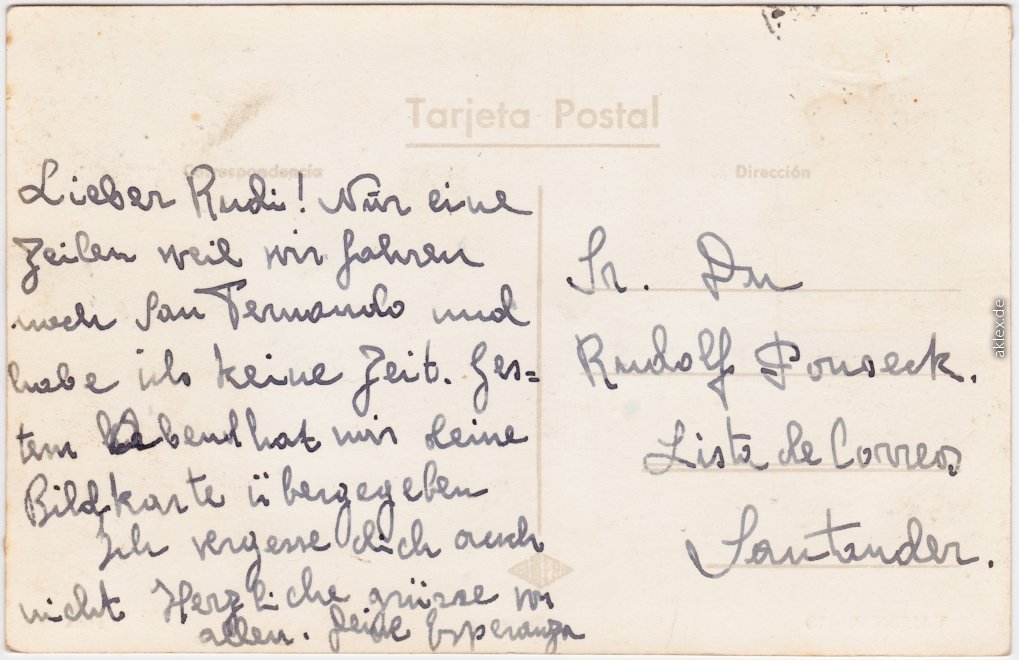 Tarjeta Postal
Correspondencia
Dirección
Lieber Rudi! Nur eine
Zeilen weil wir fahren
nach San Fernando und
habe ich keine Zeit. Ges=
tern Abend hat mir deine
Bildkarte übergegeben
Ich vergesse dich auch
nicht Herzliche grüsse von
allen. Deine Esperanza
Sr. Dn
Rudolf
Lista de Correos
Santander.
aklex.de